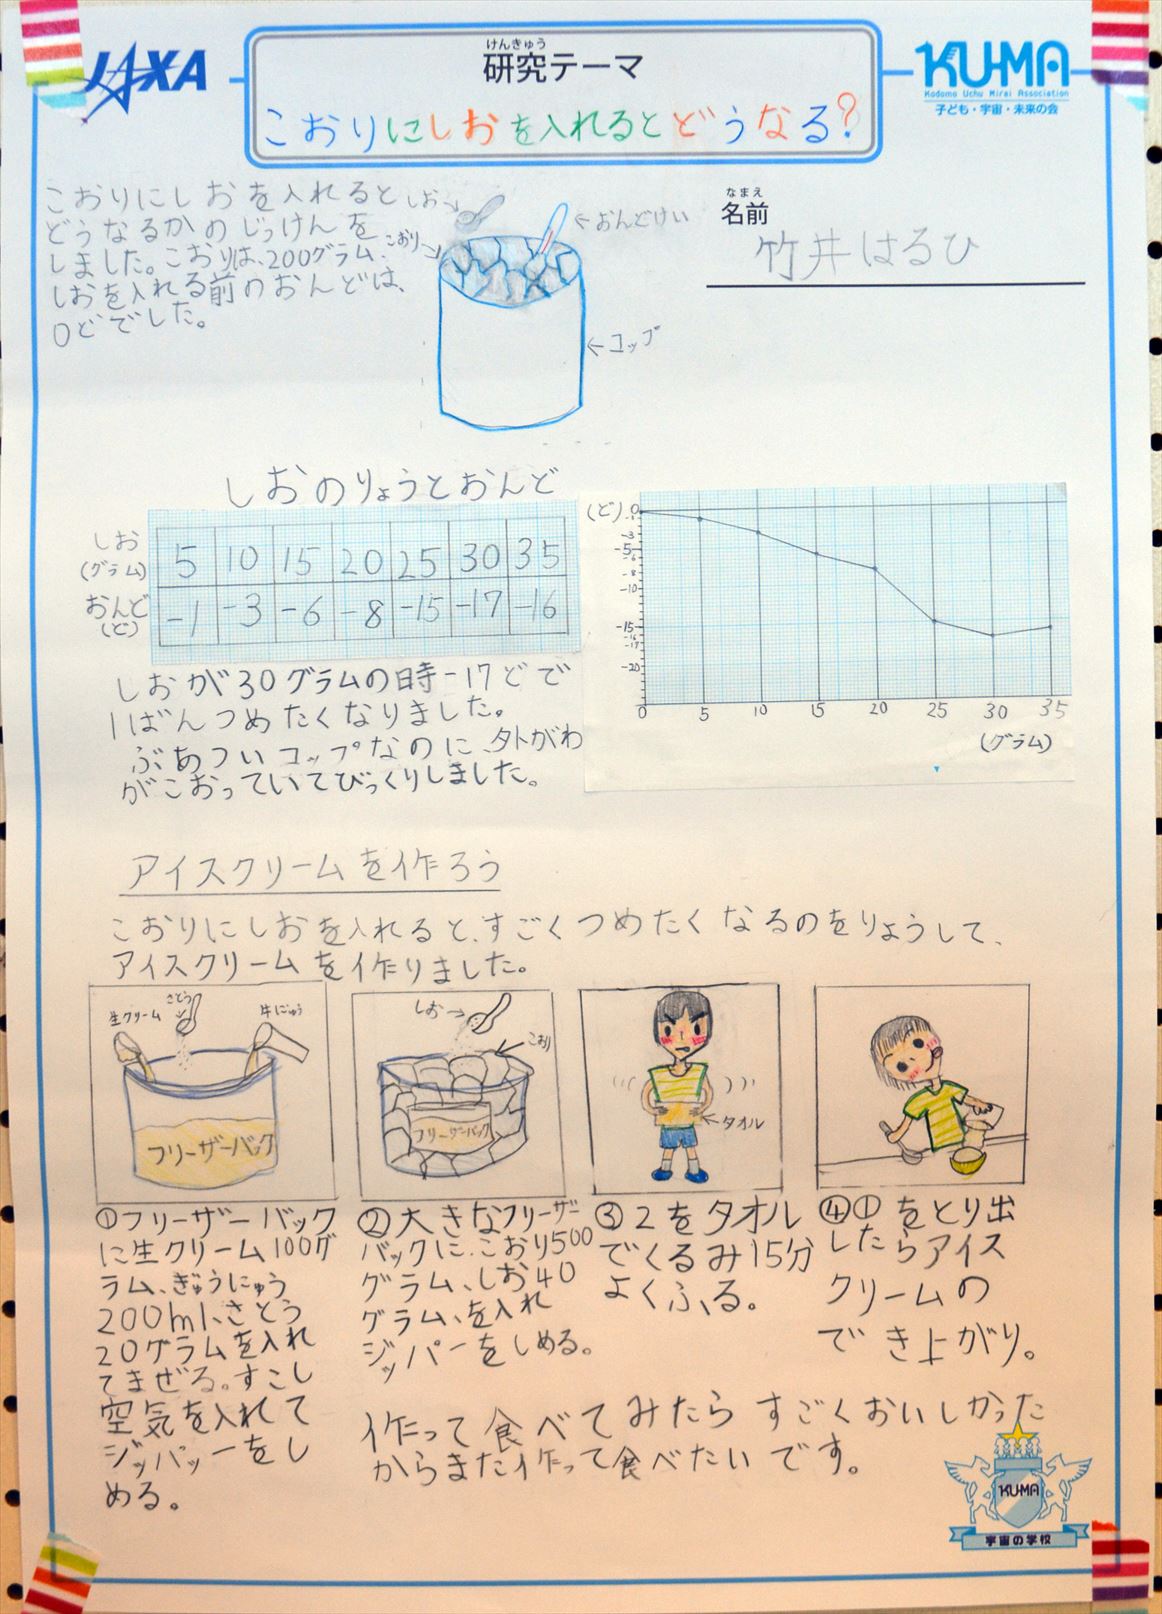 JAXA
けんきゅう
研究テーマ
こおりにしおを入れるとどうなる?
KU-MA
Kodomo Uchu Mirai Association
子ども・宇宙・未来の会
なまえ
名前
竹井はるひ
こおりにしおを入れると
どうなるかのじっけんを
しました。こおりは、200グラム、
しおを入れる前のおんどは、
0どでした。
しお→
こおり→
←おんどけい
←コップ
しおのりょうとおんど
しお
(グラム)
5 10 15 20 25 30 35
おんど
(ど)
-1 -3 -6 -8 -15 -17 -16
(ど)
0
-1
-3
-5
-6
-8
-10
-15
-16
-17
-20
0 5 10 15 20 25 30 35
(グラム)
しおが30グラムの時-17どで
1ばんつめたくなりました。
ぶあついコップなのに、外がわ
がこおっていてびっくりしました。
アイスクリームを作ろう
こおりにしおを入れると、すごくつめたくなるのをりょうして、
アイスクリームを作りました。
生クリーム
さとう
牛にゅう
フリーザーバック
しお→
こおり
フリーザーバック
←タオル
①フリーザーバック
に生クリーム100グ
ラム、ぎゅうにゅう
200ml、さとう
20グラムを入れ
てまぜる。すこし
空気を入れて
ジッパーをし
める。
②大きなフリーザー
バックに、こおり500
グラム、しお40
グラム、を入れ
ジッパーをしめる。
③2をタオル
でくるみ15分
よくふる。
④①をとり出
したらアイス
クリームの
でき上がり。
作って食べてみたらすごくおいしかった
からまた作って食べたいです。
KU-MA
宇宙の学校